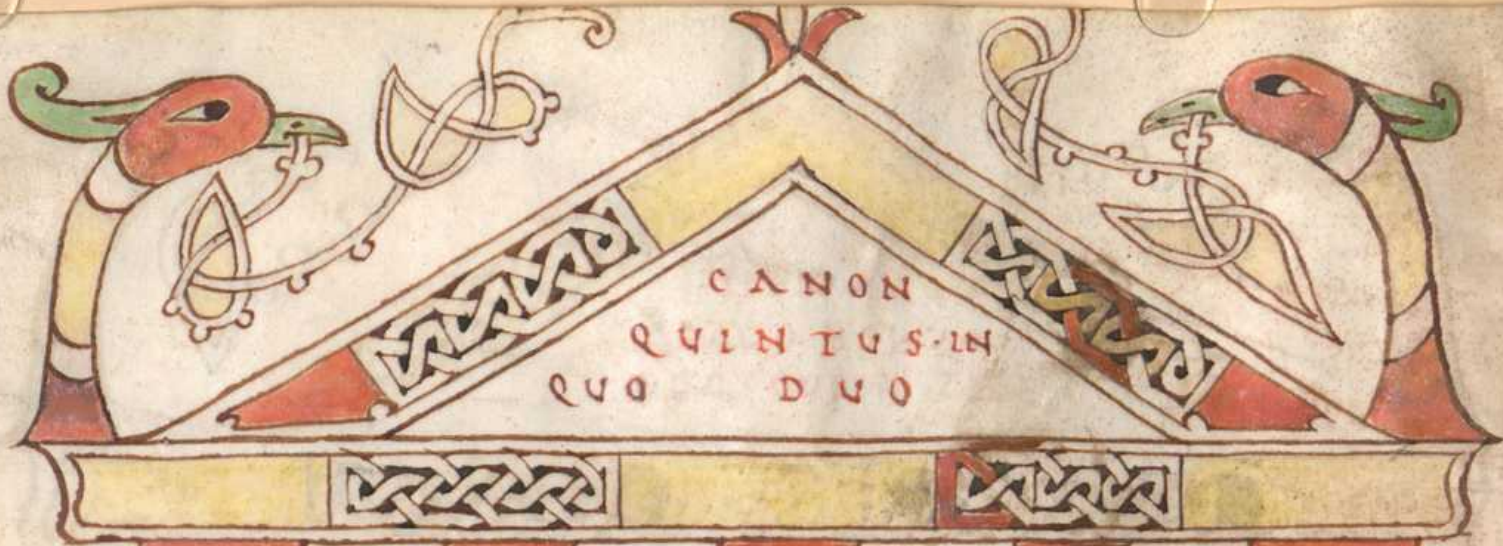 CANON
QUINTUS·IN
QUO DUO